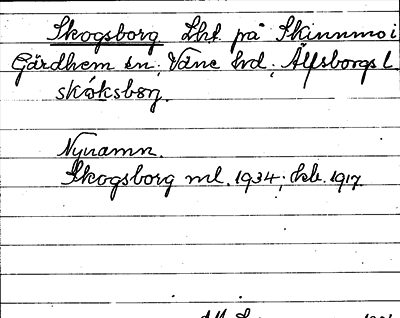 Skogsborg Lht på Skinnmo i
Gärdhem sn, Väne hd, Älfsborgs l.
skóksbørj.
Nynamn.
Skogsborg ml. 1934; kb. 1917.